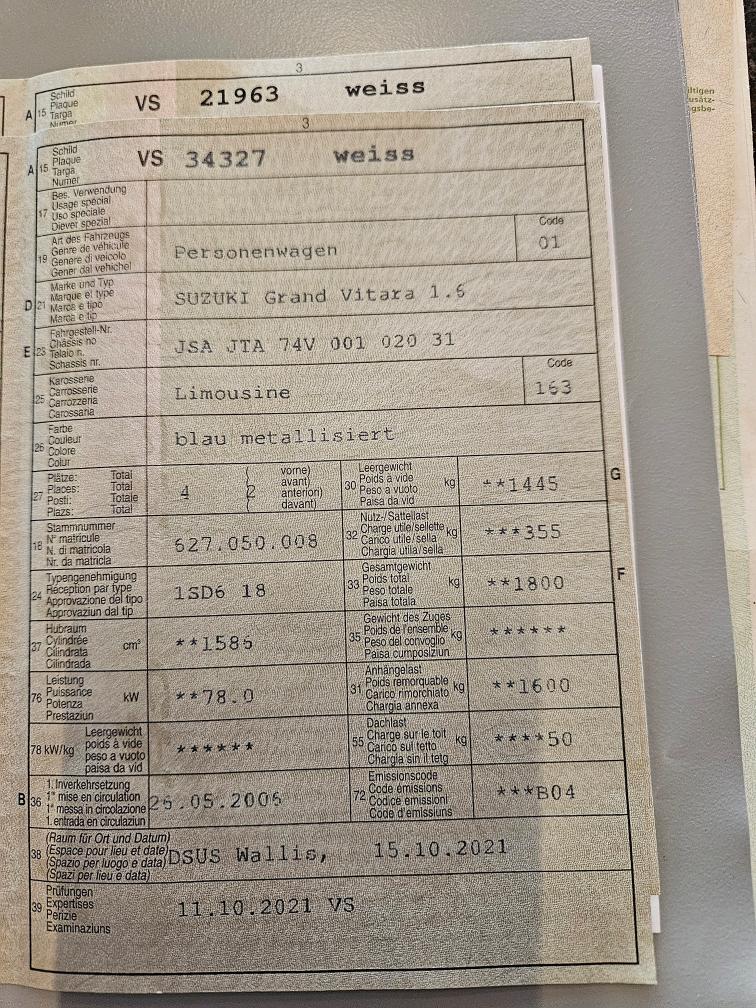 3
A 15 Schild VS 21963 weiss
Plaque
Targa
Numer
ltigen
usätz-
gsbe-
3
A 15 Schild VS 34327 weiss
Plaque
Targa
Numer
17 Bes. Verwendung
Usage spécial
Uso speciale
Diever spezial
19 Art des Fahrzeugs Code
Genre de véhicule Personenwagen 01
Genere di veicolo
Gener dal vehichel
D 21 Marke und Typ
Marque et type SUZUKI Grand Vitara 1.6
Marca e tipo
Marca e tip
E 23 Fahrgestell-Nr.
Châssis no JSA JTA 74V 001 020 31
Telaio n.
Schassis nr.
25 Karosserie Code
Carrosserie Limousine 163
Carrozzeria
Carossaria
26 Farbe
Couleur blau metallisiert
Colore
Colur
27 Plätze: Total 4 ( 2 vorne)
Places: Total avant)
Posti: Totale anteriori)
Plazs: Total davant)
30 Leergewicht kg **1445 G
Poids à vide
Peso a vuoto
Paisa da vid
18 Stammnummer 627.050.008
N° matricule
N. di matricola
Nr. da matricla
32 Nutz-/Sattellast kg ***355
Charge utile/sellette
Carico utile/sella
Chargia utila/sella
24 Typengenehmigung 1SD6 18
Réception par type
Approvazione del tipo
Approvaziun dal tip
33 Gesamtgewicht kg **1800 F
Poids total
Peso totale
Paisa totala
37 Hubraum cm³ **1586
Cylindrée
Cilindrata
Cilindrada
35 Gewicht des Zuges kg ******
Poids de l'ensemble
Peso del convoglio
Paisa cumposiziun
76 Leistung kW **78.0
Puissance
Potenza
Prestaziun
31 Anhängelast kg **1600
Poids remorquable
Carico rimorchiato
Chargia annexa
78 kW/kg Leergewicht ******
poids à vide
peso a vuoto
paisa da vid
55 Dachlast kg ****50
Charge sur le toit
Carico sul tetto
Chargia sin il tetg
B 36 1. Inverkehrsetzung 26.05.2006
1re mise en circulation
1a messa in circolazione
1. entrada en circulaziun
72 Emissionscode ***B04
Code émissions
Codice emissioni
Code d'emissiuns
38 (Raum für Ort und Datum)
(Espace pour lieu et date) DSUS Wallis, 15.10.2021
(Spazio per luogo e data)
(Spazi per lieu e data)
39 Prüfungen
Expertises 11.10.2021 VS
Perizie
Examinaziuns